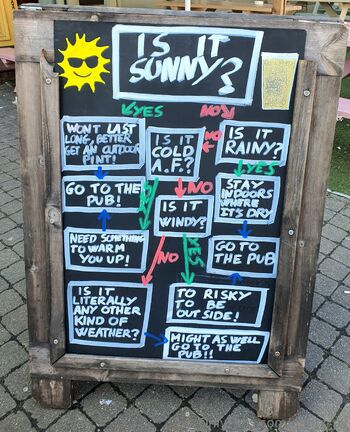 IS IT
SUNNY?
YES
NO
WONT LAST
LONG, BETTER
GET AN OUTDOOR
PINT!
IS IT
COLD
A.F.?
NO
IS IT
RAINY?
YES
GO TO THE
PUB!
YES
NO
STAY
INDOORS
WHERE
ITS DRY
IS IT
WINDY?
NEED SOMETHING
TO WARM
YOU UP!
NO
YES
GO TO
THE PUB
IS IT
LITERALLY
ANY OTHER
KIND OF
WEATHER?
TO RISKY
TO BE
OUT SIDE!
MIGHT AS WELL
GO TO THE
PUB!!